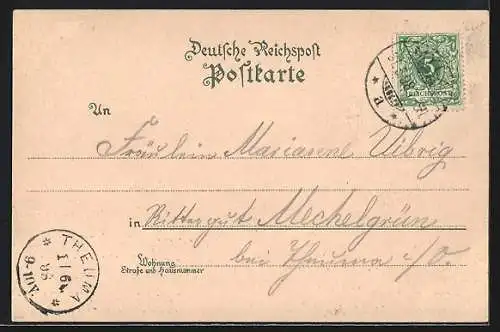 Deutsche Reichspost
Postkarte
5
REICHSPOST
An
Fräulein Marianne Vibrig
in Rittergut Mechelgrün
Wohnung
Straße und Hausnummer
bei Theuma i/V.
THEUMA
1/6
98
9-10V